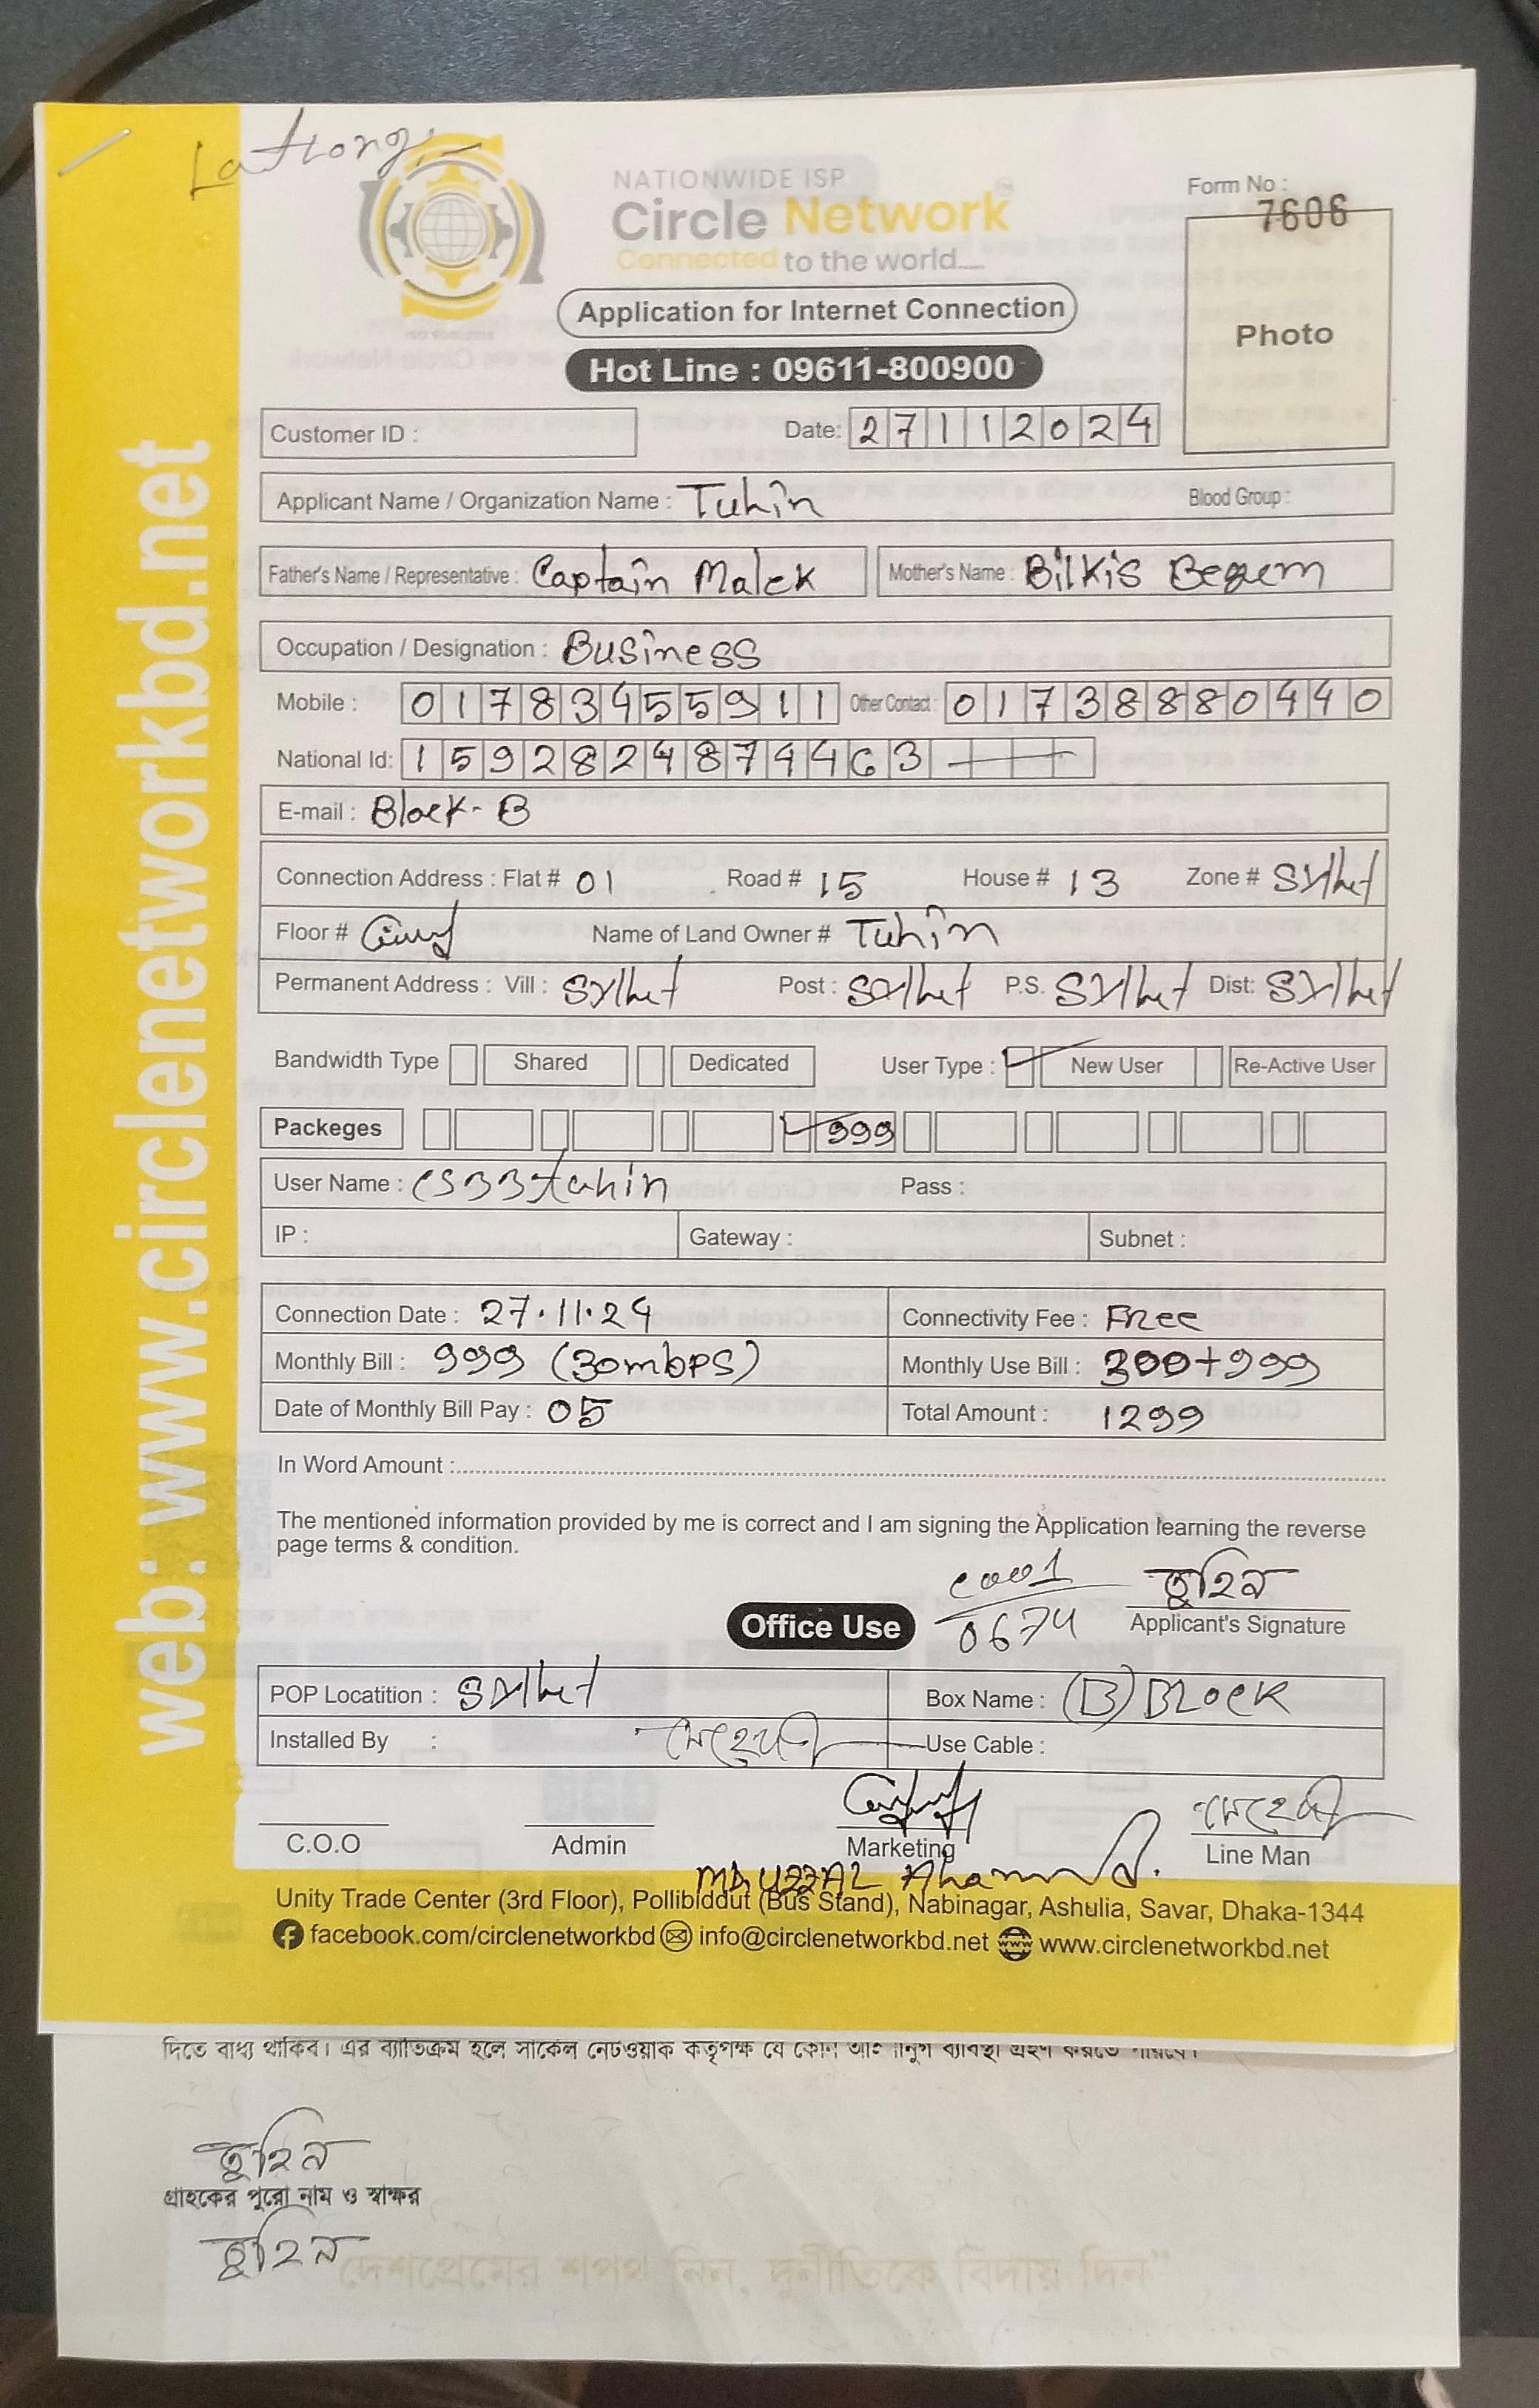 Lattong,-
NATIONWIDE ISP
Circle Network
Connected to the world....
Form No :
7606
Photo
Application for Internet Connection
Hot Line : 09611-800900
Customer ID :
Date: 27112024
Applicant Name / Organization Name : Tuhin Blood Group :
Father's Name / Representative : Captain Malek Mother's Name : Bilkis Begum
Occupation / Designation : Business
Mobile : 01783455911 Other Contact : 01738880440
National Id: 1592824874463
E-mail : Block-B
Connection Address : Flat # 01 Road # 15 House # 13 Zone # Sylhet
Floor # Name of Land Owner # Tuhin
Permanent Address : Vill : Sylhet Post : Sylhet P.S. Sylhet Dist: Sylhet
Bandwidth Type Shared Dedicated User Type : New User Re-Active User
Packeges 999
User Name : CS33tuhin Pass :
IP : Gateway : Subnet :
Connection Date : 27.11.24 Connectivity Fee : Free
Monthly Bill : 999 (30mbps) Monthly Use Bill : 300+999
Date of Monthly Bill Pay : 05 Total Amount : 1299
In Word Amount :
The mentioned information provided by me is correct and I am signing the Application learning the reverse
page terms & condition.
0674
তুহিন
Office Use
Applicant's Signature
POP Locatition : Sylhet Box Name : (B) BLOCK
Installed By : মেহেদী Use Cable :
মেহেদী
C.O.O Admin Marketing Line Man
MD UZZAL Ahammed.
Unity Trade Center (3rd Floor), Pollibiddut (Bus Stand), Nabinagar, Ashulia, Savar, Dhaka-1344
facebook.com/circlenetworkbd info@circlenetworkbd.net www.circlenetworkbd.net
web: www.circlenetworkbd.net
দিতে বাধ্য থাকিব। এর ব্যাতিক্রম হলে সার্কেল নেটওয়ার্ক কর্তৃপক্ষ যে কোন আইনানুগ ব্যাবস্থা গ্রহণ করতে পারবে।
তুহিন
গ্রাহকের পুরো নাম ও স্বাক্ষর
তুহিন
"দেশপ্রেমের শপথ নিন, দুর্নীতিকে বিদায় দিন"